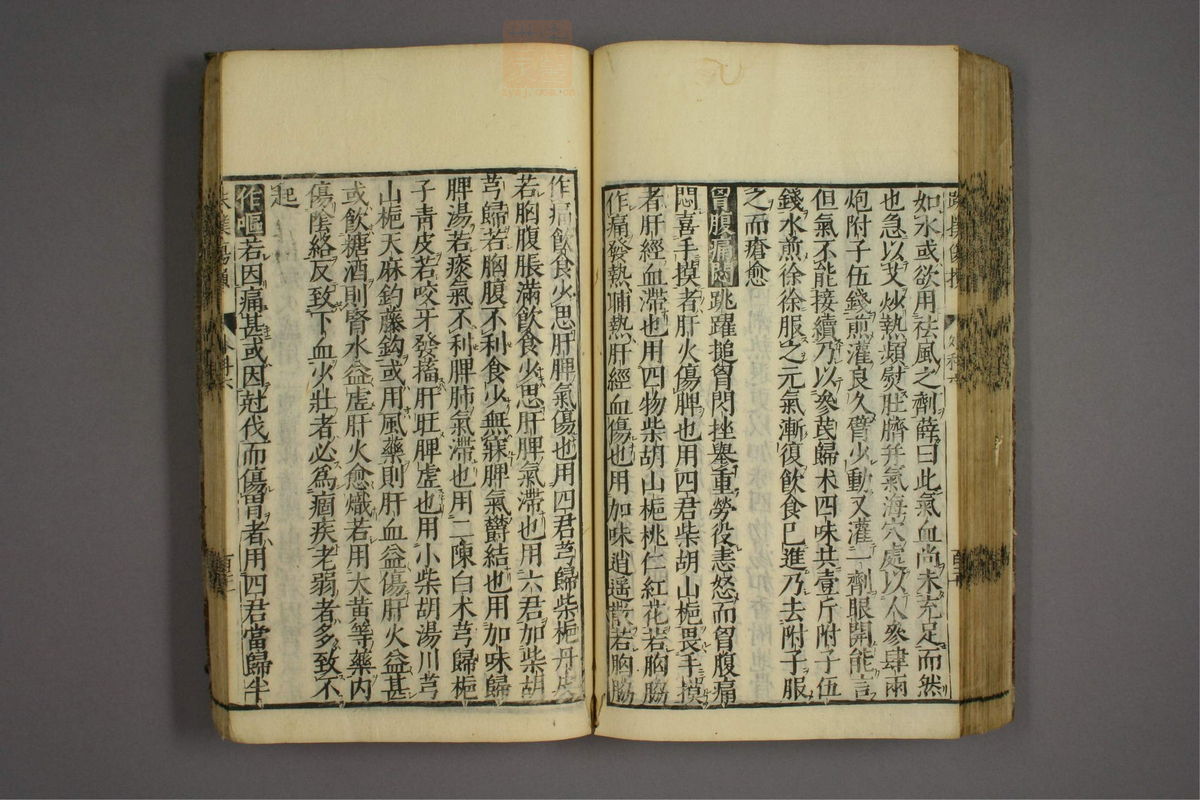 如水或欲用祛風之劑薛曰此氣血尚未充足而然
也急以艾炒熱頻熨肚臍并氣海穴處以人參肆兩
炮附子伍錢煎灌良久臂少動又灌一劑眼開能言
但氣不能接續乃以參芪歸术四味共壹斤附子伍
錢水煎徐徐服之元氣漸復飲食已進乃去附子服
之而瘡愈
胷腹痛悶跳躍搥胷閃挫舉重勞役恚怒而胷腹痛
悶喜手摸者肝火傷脾也用四君柴胡山梔畏手摸
者肝經血滯也用四物柴胡山梔桃仁紅花若胸脇
作痛發熱晡熱肝經血傷也用加味逍遥散若胸脇
作痛飲食少思肝脾氣傷也用四君芎歸柴梔丹皮
若胸腹脹滿飲食少思肝脾氣滯也用六君加柴胡
芎歸若胸腹不利食少無寐脾氣欝結也用加味歸
脾湯若痰氣不利脾肺氣滯也用二陳白术芎歸梔
子青皮若咬牙發搐肝旺脾虚也用小柴胡湯川芎
山梔天麻釣藤鈎或用風藥則肝血益傷肝火益甚
或飲糖酒則腎水益虚肝火愈熾若用大黄等藥内
傷陰絡反致下血少壯者必爲痼疾老弱者多致不
起
作嘔若因痛甚或因尅伐而傷胃者用四君當歸半